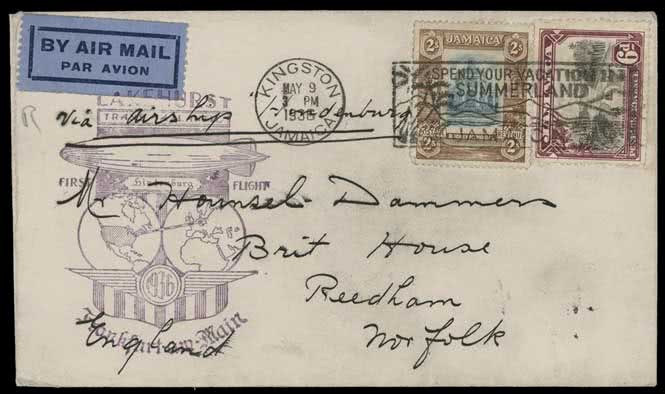 BY AIR MAIL
PAR AVION
LAKEHURST
via airship Hindenburg
KINGSTON
MAY 9
3 PM
1936
JAMAICA
2s JAMAICA 2s
2s 2s
SPEND YOUR VACATION IN
SUMMERLAND
JAMAICA
6d
FIRST Hindenburg FLIGHT
1936
Frankfurt am-Main
Mr Hounsel-Dammers
Brit House
Reedham
Norfolk
England